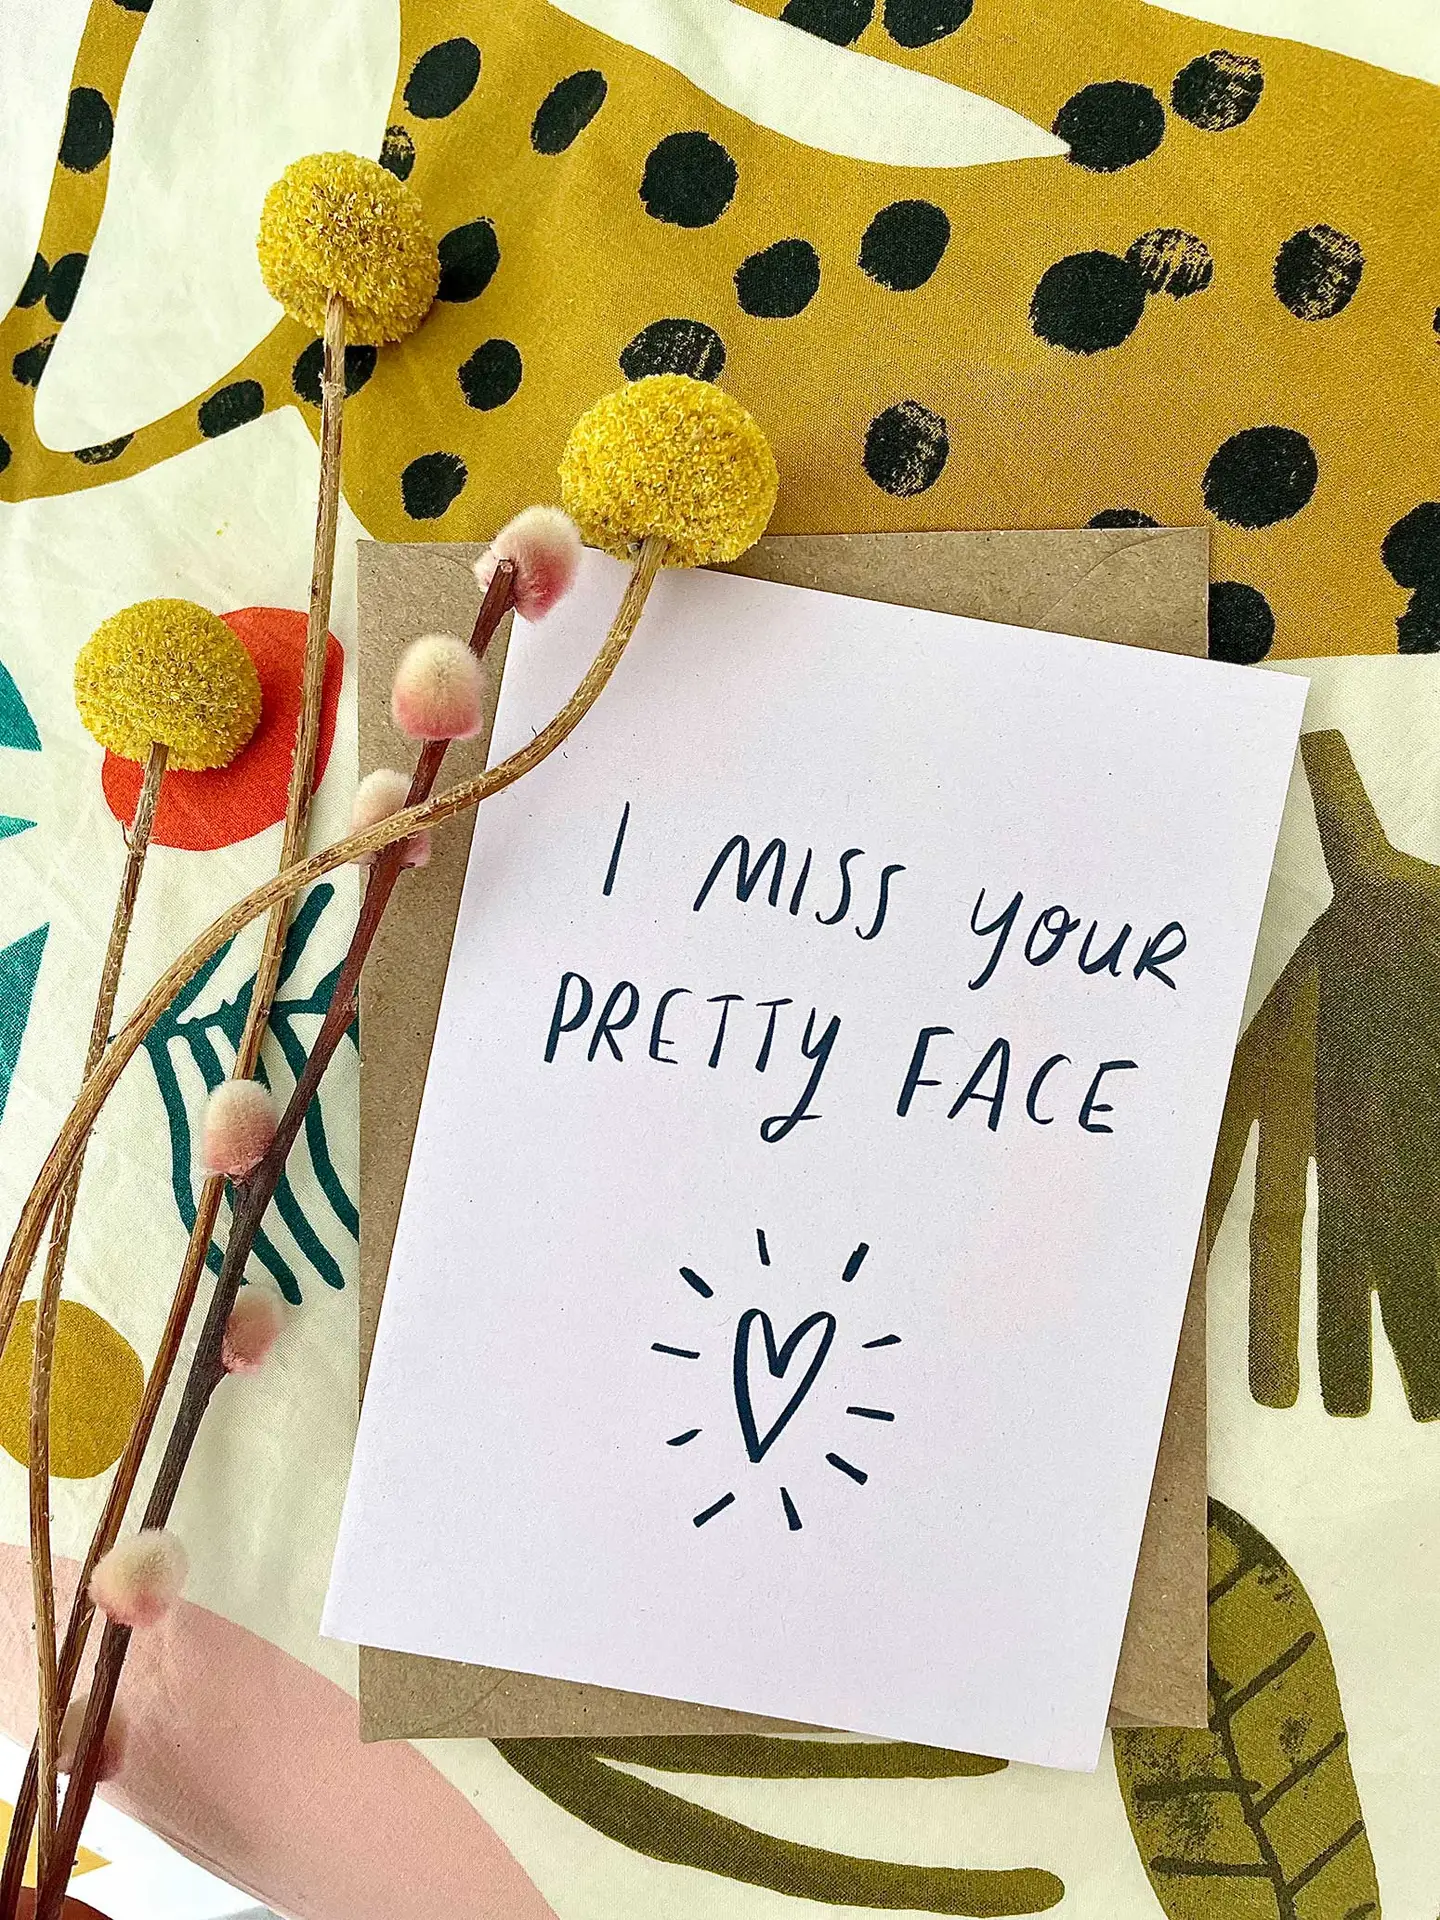 I MISS YOUR
PRETTY FACE